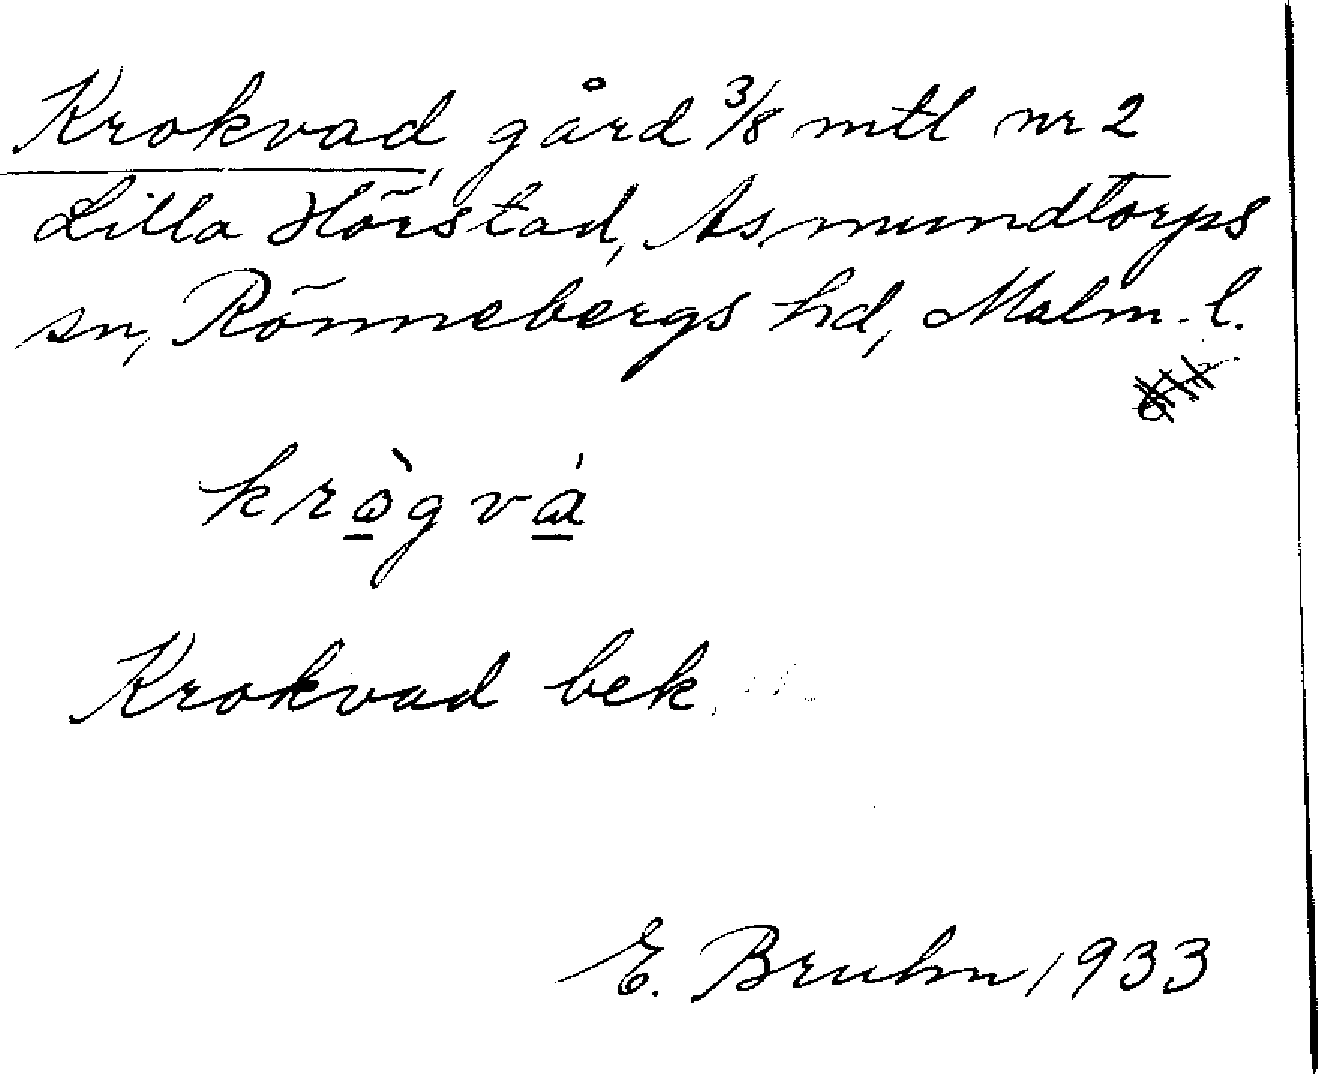 Krokvad, gård 3/8 mtl nr 2
Lilla Hörstad, Asmundtorps
sn, Rönnebergs hd, Malm. l.
krò̱gvȧ̱
Krokvad bek.
E. Bruhn 1933